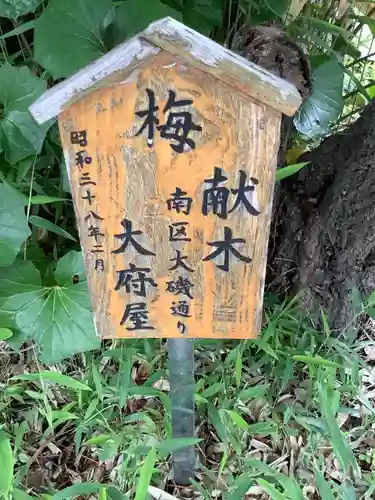 献木
梅
南区大磯通り
大府屋
昭和三十八年二月